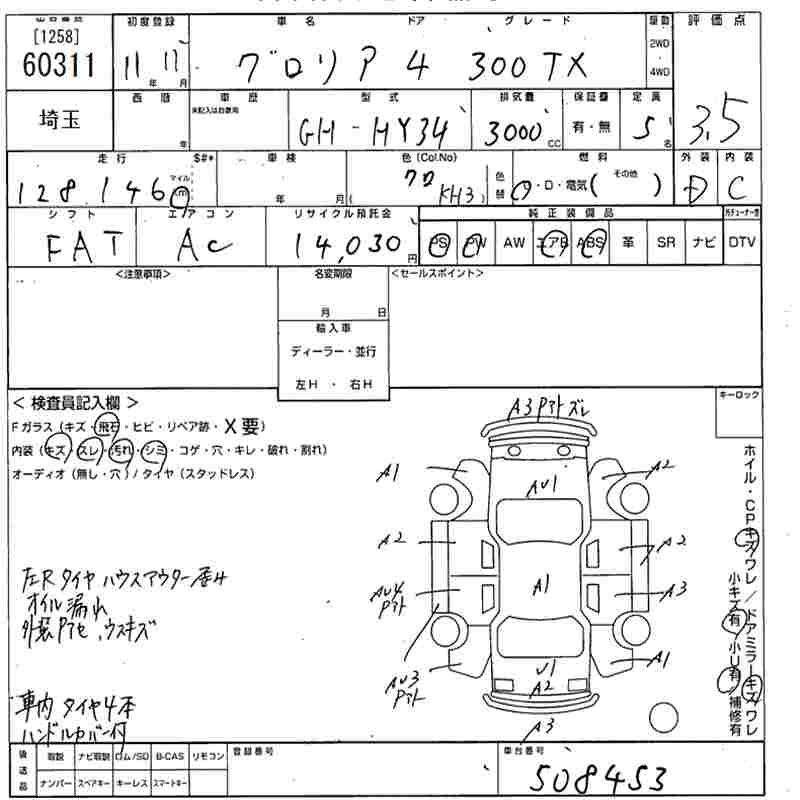 [1258] 初度登録 車名 ドア グレード 駆動 評価点
60311 11 11 グロリア 4 300TX 2WD 3.5
年 月 4WD
埼玉 西暦 車歴 型式 排気量 保証書 定員
未記入は自家用
年 GH-HY34 3000 CC 有・無 5 名
走行 マイル S#* 車検 色(Col.No) 色替 燃料 外装 内装
128,146 km 年 月( クロ KH3) G・D・電気( その他 ) D C
シフト エアコン リサイクル預託金 純正装備品
FAT AC 14,030 円 PS PW AW エアB ABS 革 SR ナビ DTV
<注意事項> 名変期限 <セールスポイント>
月 日
輸入車
ディーラー・並行
左H・右H
<検査員記入欄> キーロック
Fガラス(キズ・飛石・ヒビ・リペア跡・X要)
内装(キズ・スレ・汚れ・シミ・コゲ・穴・キレ・破れ・割れ)
オーディオ(無し・穴)/タイヤ(スタッドレス)
A3 アト ズレ
A1 A2
AU1
A2 A2
A1
AU4 アト A3
U1
AU3 アト A2 A1
A3
左Rタイヤハウスアウター歪み
オイル漏れ
外装 ウスキズ
車内タイヤ4本
ハンドルカバー付
ホイル・CPキズワレ/ドアミラーキズワレ
小キズ有/小U有/補修有
後送品 取説 ナビ取説 ロム/SD B-CAS リモコン 登録番号 車台番号
ナンバー スペアキー キーレス スマートキー 508453